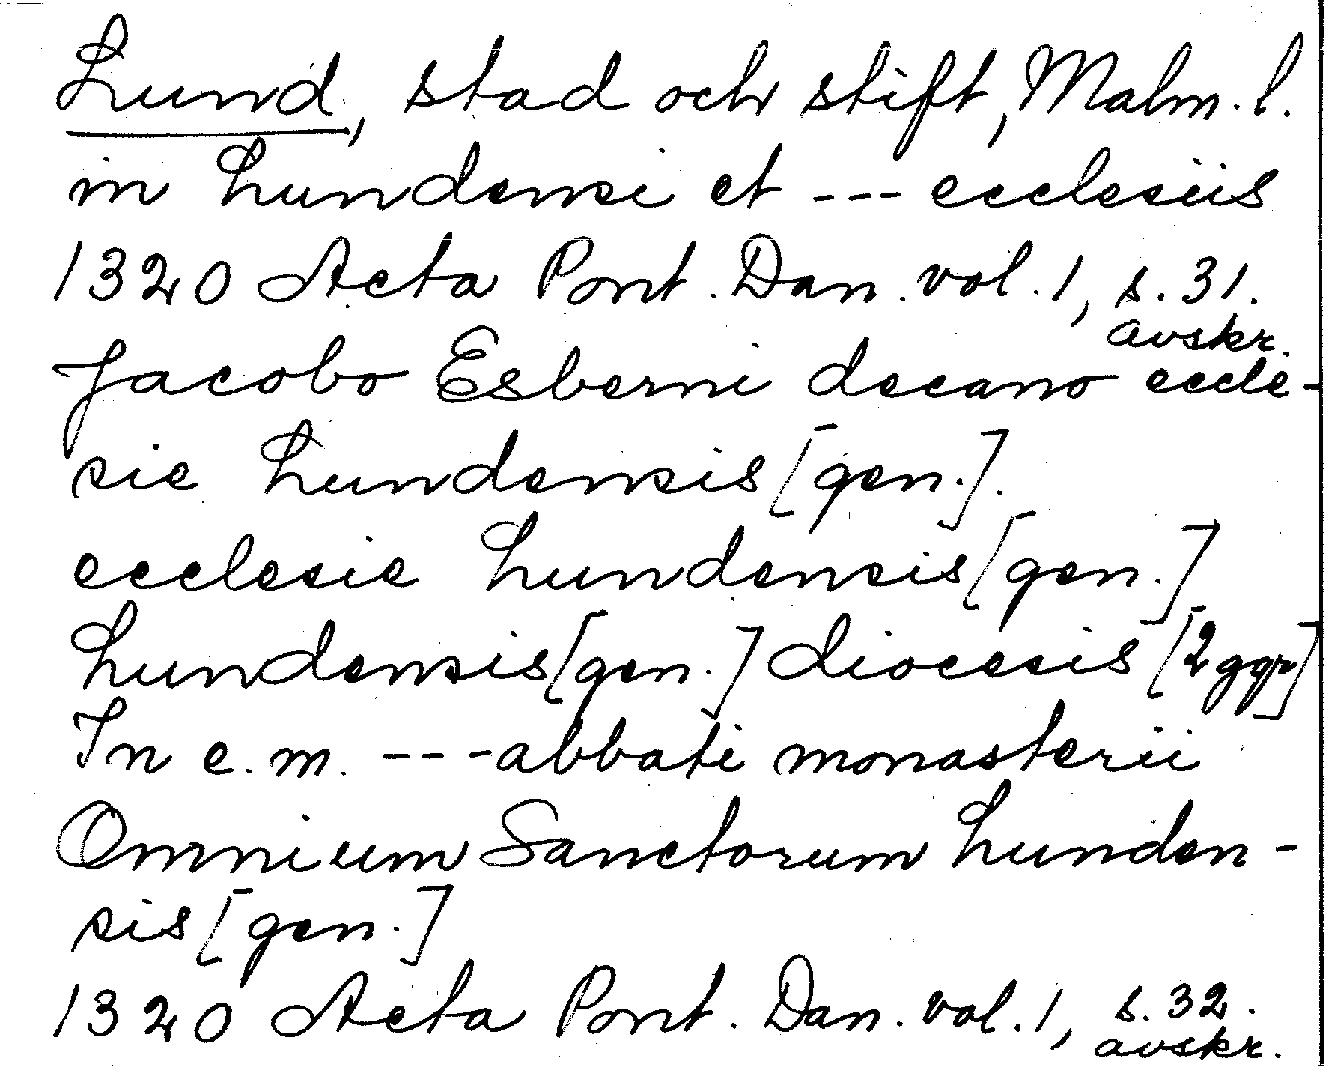 Lund, stad och stift, Malm. l.
in Lundensi et --- ecclesiis
1320 Acta Pont. Dan. vol. 1, s. 31.
avskr.
Jacobo Esberni decano eccle-
sie Lundensis [gen.].
ecclesie Lundensis [gen.]
Lundensis [gen.] diocesis [2 ggr]
In e. m. --- abbati monasterii
Omnium Sanctorum Lunden-
sis [gen.]
1320 Acta Pont. Dan. vol. 1, s. 32.
avskr.